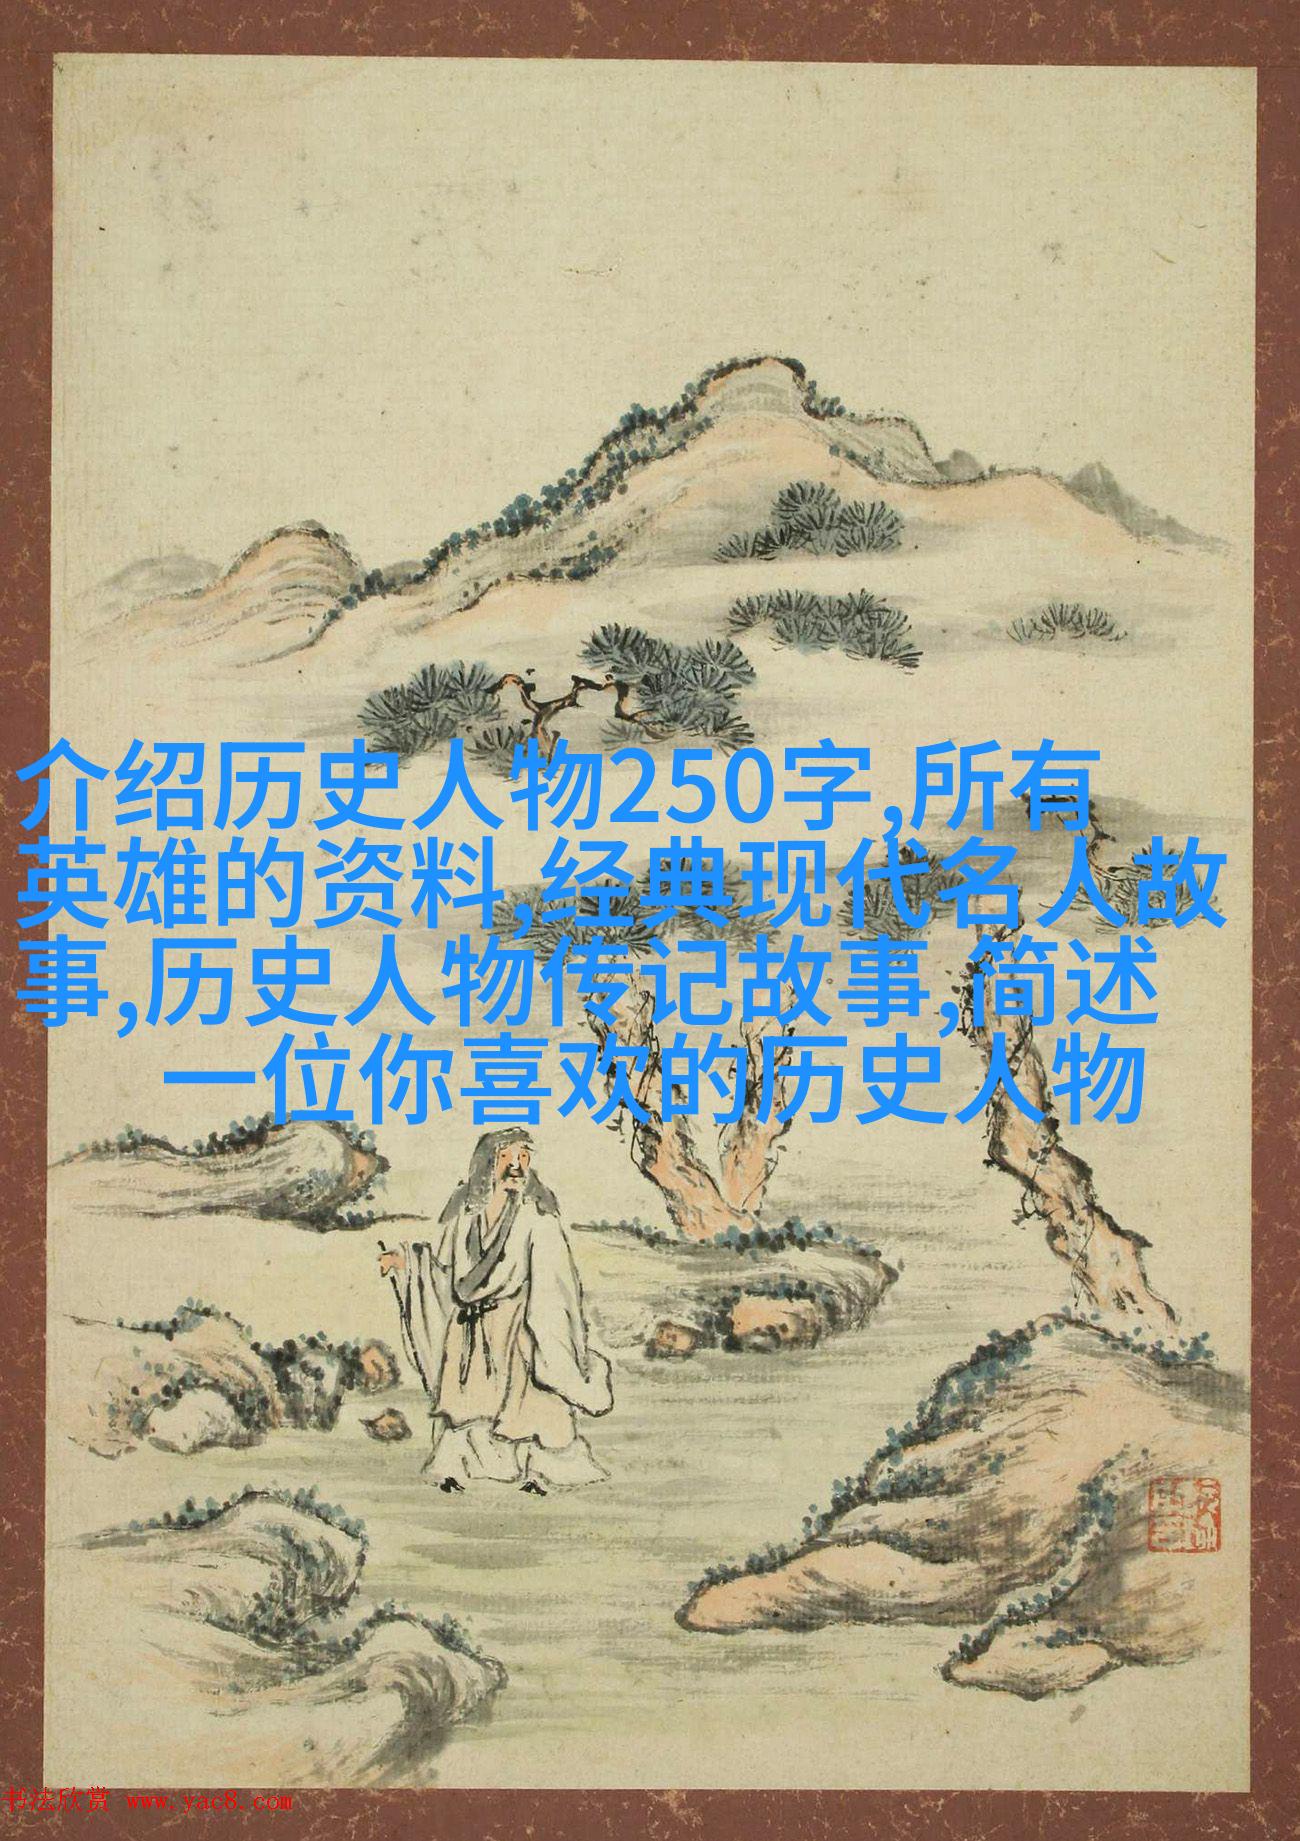 介绍历史人物250字,所有
英雄的资料,经典现代名人故
事,历史人物传记故事,简述
一位你喜欢的历史人物
书法欣赏 www.yac8.com